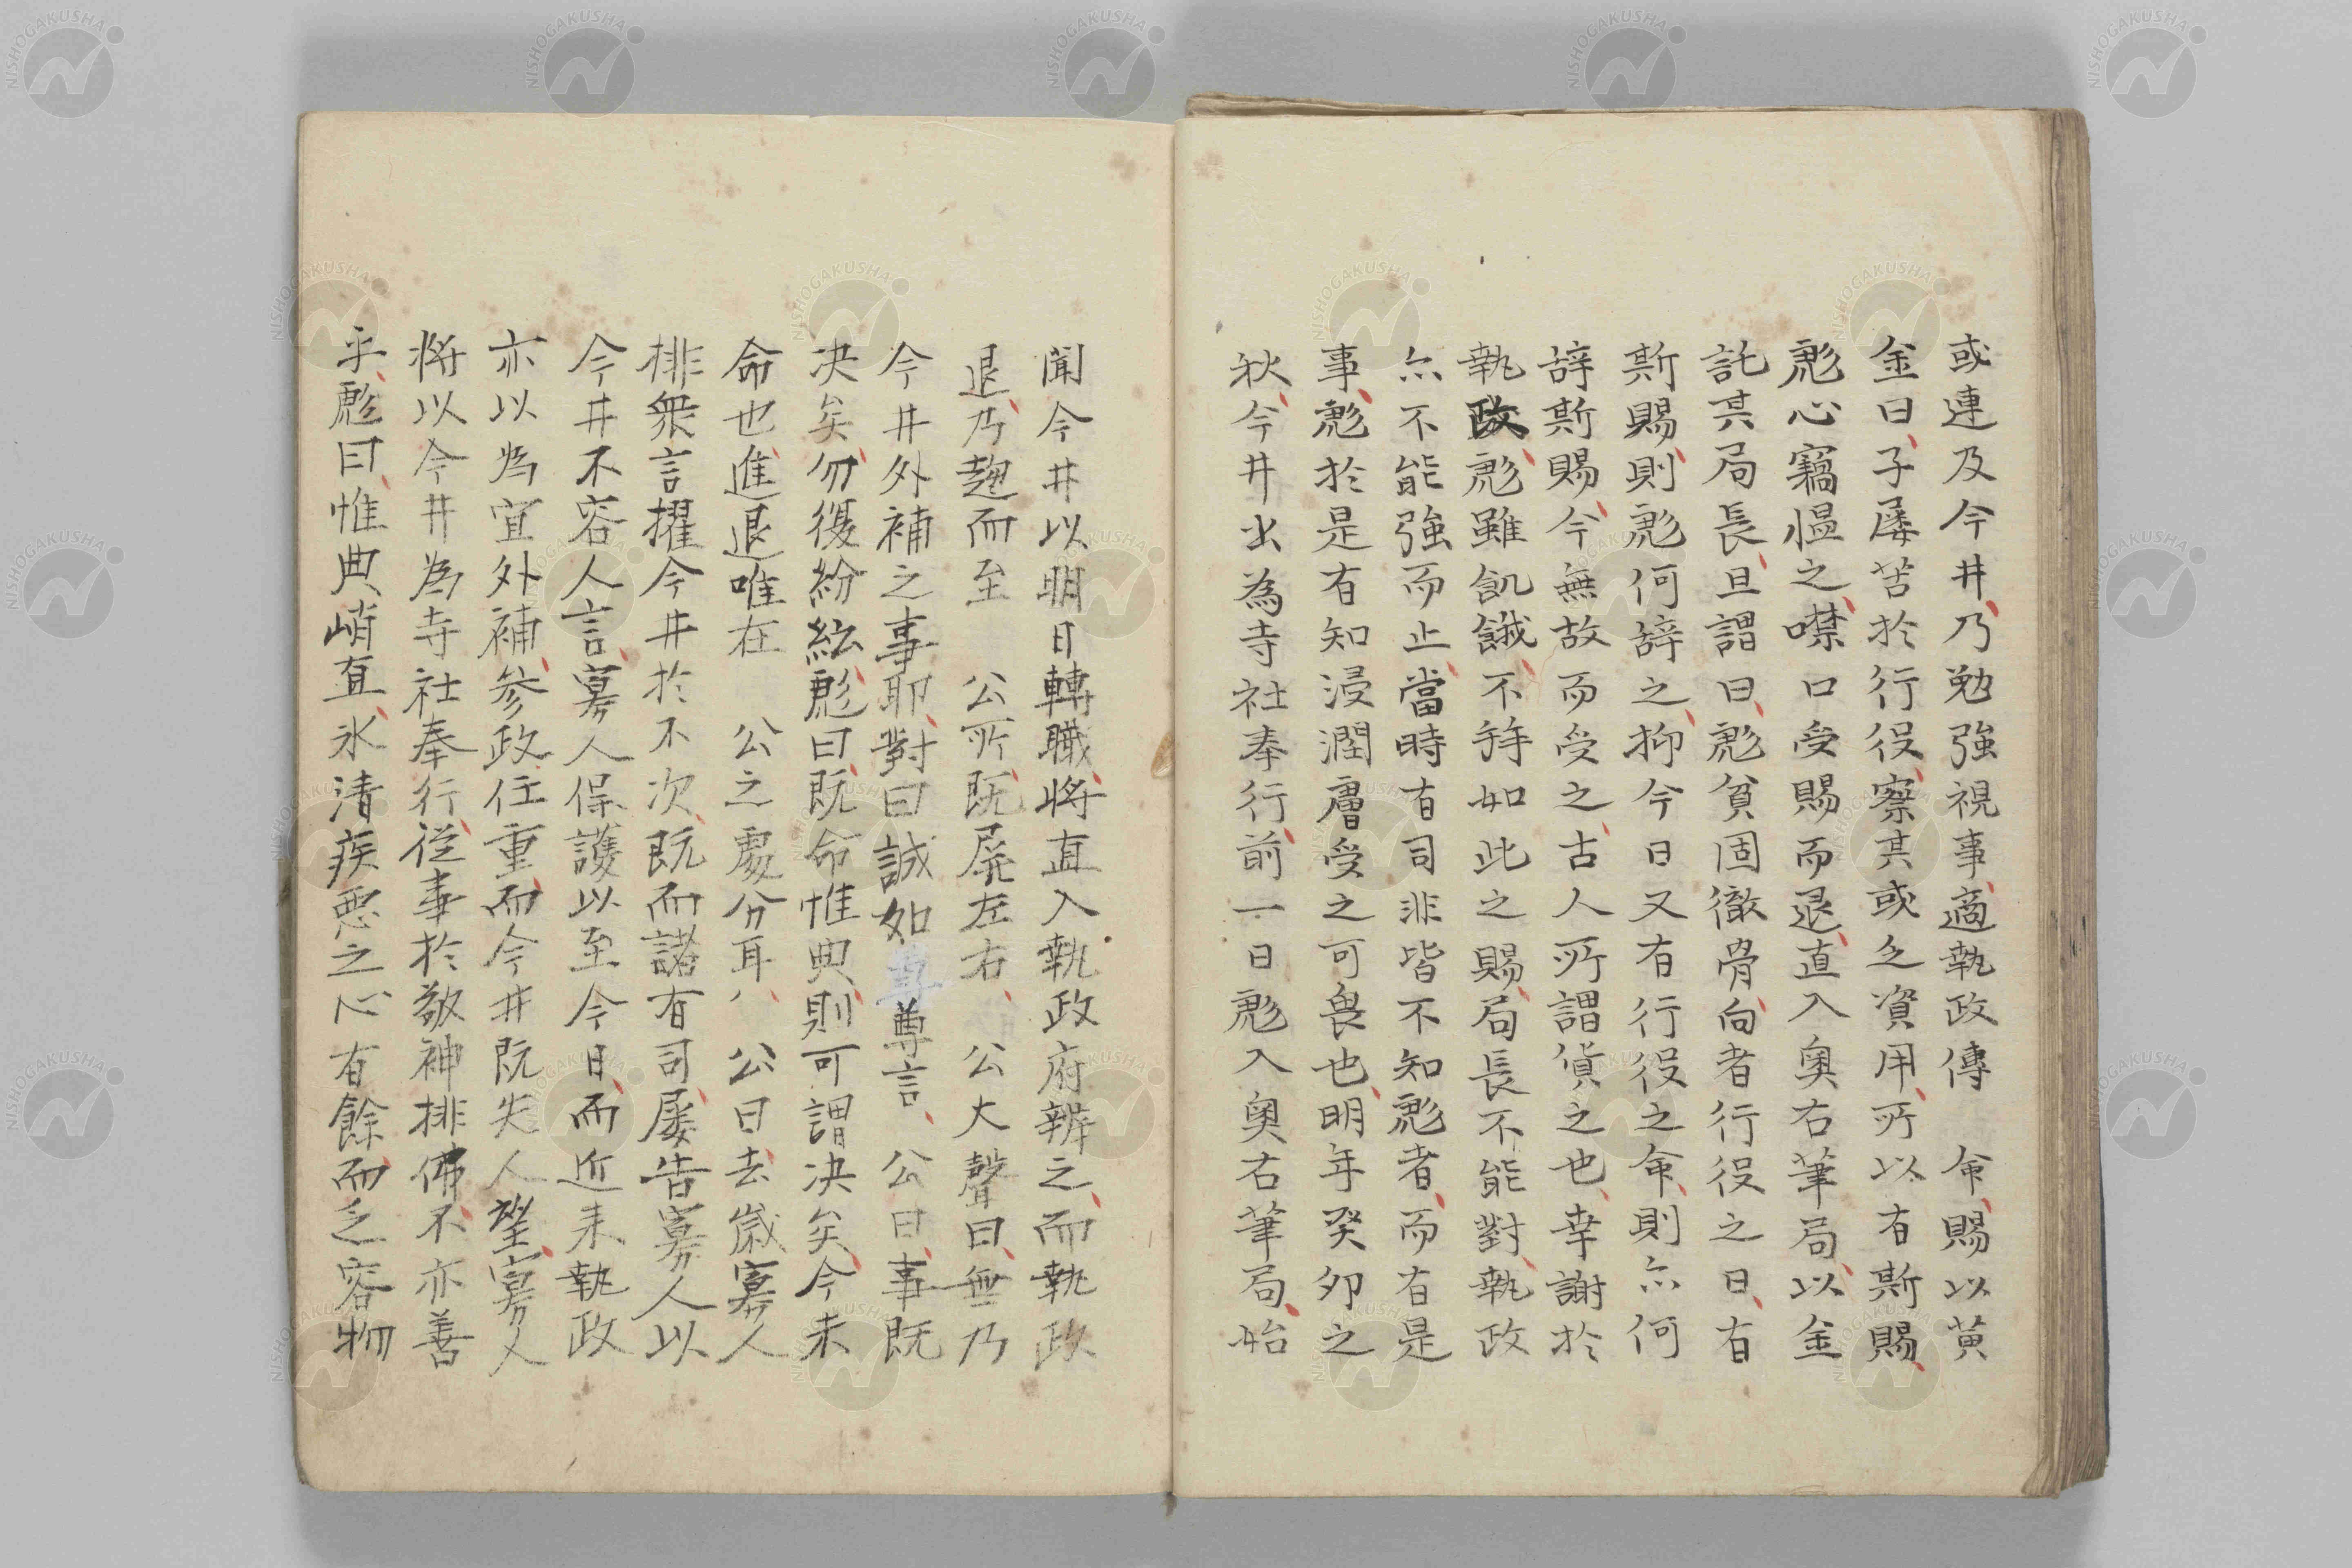 或連及今井、乃勉強視事、適執政傳　命、賜以黄
金曰、子屡苦於行役、察其或乏資用、所以有斯賜、
彪心竊慍之、噤口受賜而退、直入奥右筆局、以金
託其局長、且謂曰、彪貧固徹骨、向者行役之日、有
斯賜、則彪何辞之、抑今日又有行役之命、則亦何
辞斯賜、今無故而受之、古人所謂貨之也、幸謝於
執政、彪雖飢餓、不拜如此之賜、局長不能對、執政
亦不能強而止、當時有司非皆不知彪者、而有是
事、彪於是有知浸潤膚受之可畏也、明年癸卯之
秋、今井出為寺社奉行、前一日彪入奥右筆局、始
聞今井以明日轉職、將直入執政府辨之、而執政
退、乃趨而至　公所、既屏左右、公大聲曰、無乃
今井外補之事耶、對曰誠如尊言、公曰、事既
决矣、勿復紛紜、彪曰、既命惟典、則可謂决矣、今未
命也、進退唯在　公之處分耳、公曰去歳寡人
排衆言擢今井於不次、既而諸有司屡告寡人以
今井不容人言、寡人保護以至今日、而近来執政
亦以為宜外補、参政任重、而今井既失人望、寡人
將以今井為寺社奉行、從事於敬神排佛、不亦善
乎、彪曰、惟典峭直、氷清疾悪之心有餘、而乏容物